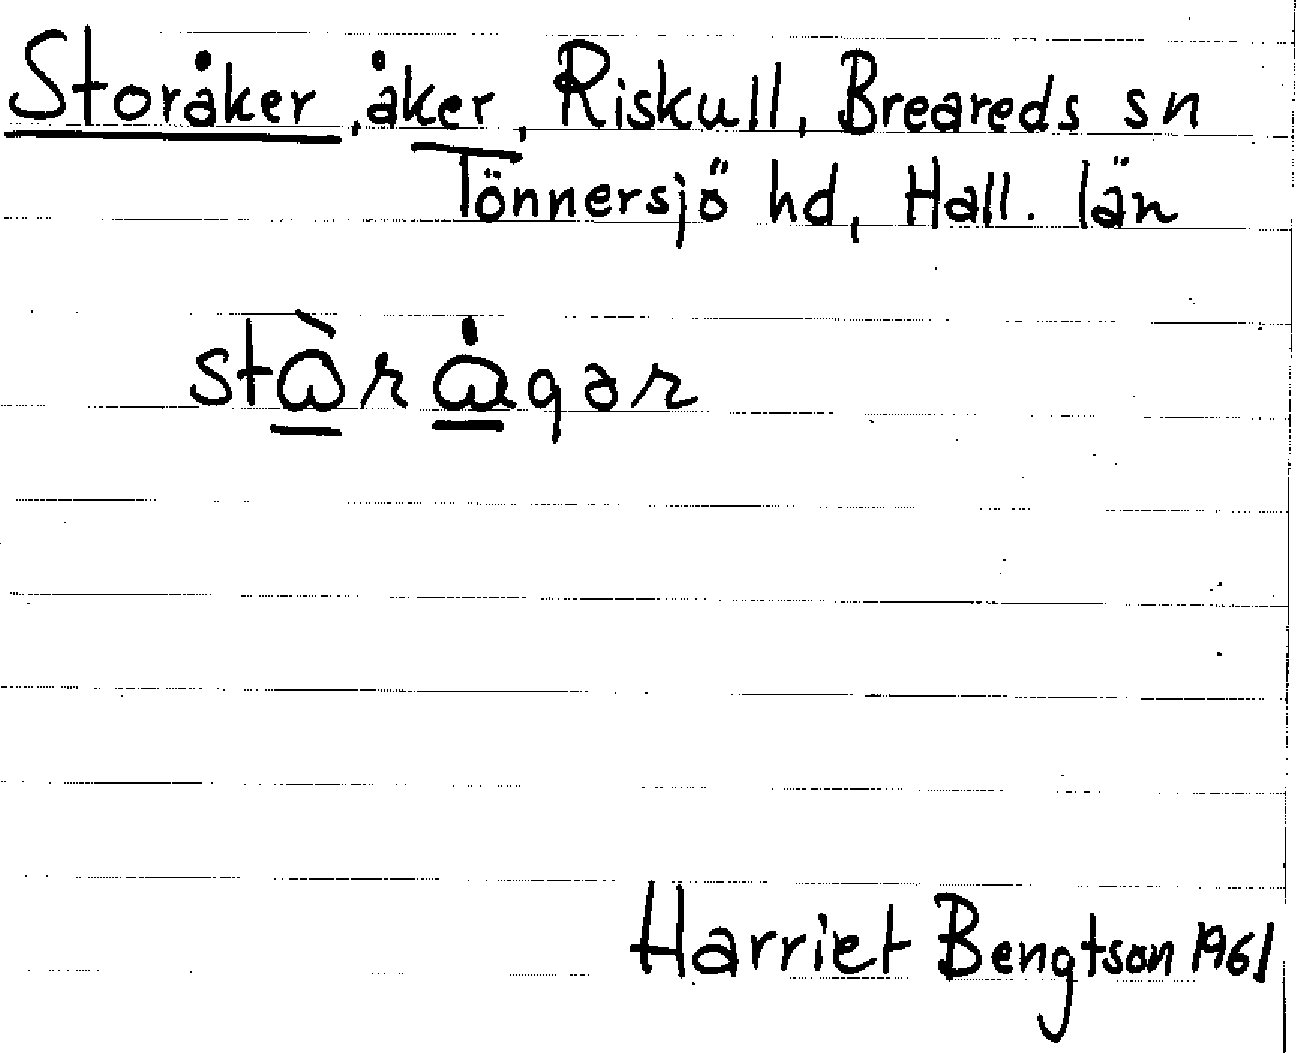 Storåker, åker, Riskull, Breareds sn
Tönnersjö hd, Hall. län
Harriet Bengtson 1961